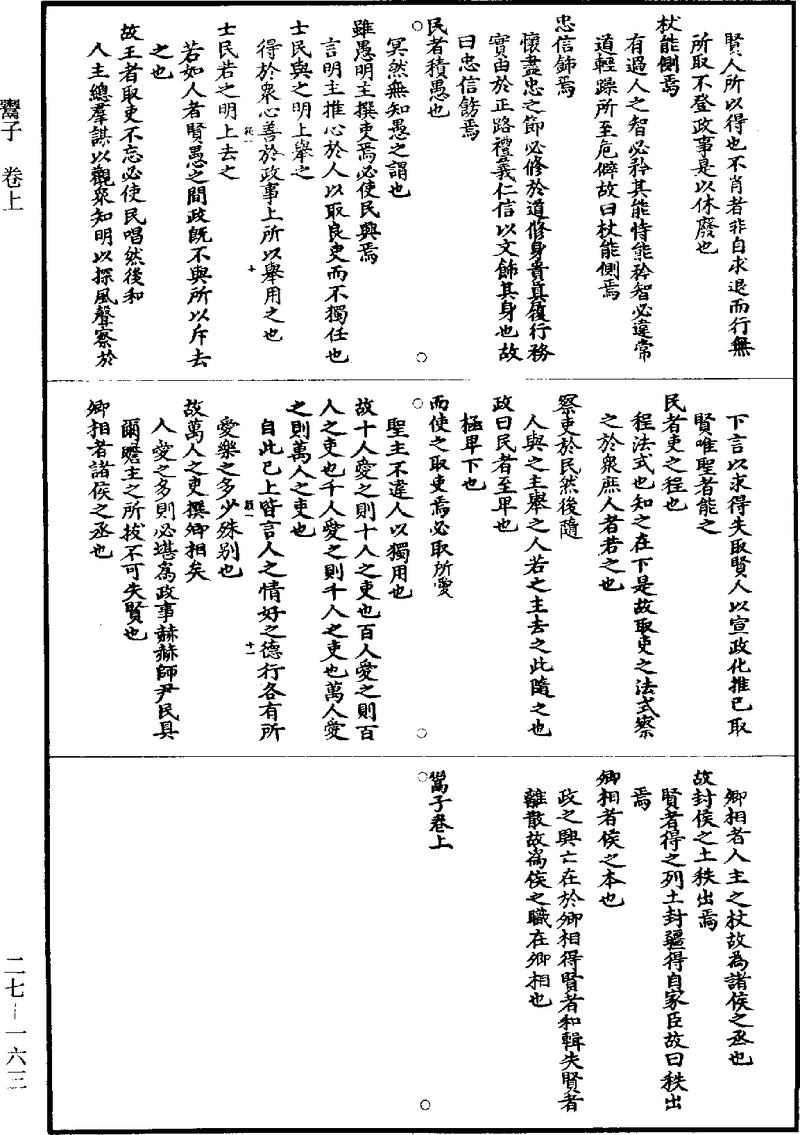 賢人所以得也不肖者非自求退而行無
所取不登政事是以休廢也
杖能側焉
有過人之智必矜其能恃能矜智必違常
道輕躁所至危僻故曰杖能側焉
忠信飾焉
懷盡忠之節必修於道修身貴真履行務
實由於正路禮義仁信以文飾其身也故
曰忠信飭焉
民者積愚也
冥然無知愚之謂也
雖愚明主撰吏焉必使民興焉
言明主推心於人以取良吏而不獨任也
士民與之明上舉之
得於眾心善於政事上所以舉用之也
十
士民若之明上去之
若如人者賢愚之間政既不與所以斥去
之也
故王者取吏不忘必使民唱然後和
人主總羣謀以觀眾知明以探風聲察於
下言以求得失取賢人以宣政化推已取
賢唯聖者能之
民者吏之程也
程法式也知之在下是故取吏之法式察
之於眾庶人者若之也
察吏於民然後隨
人與之主舉之人若之主去之此隨之也
政曰民者至卑也
極卑下也
而使之取吏焉必取所愛
聖主不違人以獨用也
故十人愛之則十人之吏也百人愛之則百
人之吏也千人愛之則千人之吏也萬人愛
之則萬人之吏也
自此已上皆言人之情好之德行各有所
十一
愛樂之多少殊別也
故萬人之吏撰卿相矣
人愛之多則必堪為政事赫赫師尹民具
爾瞻主之所拔不可失賢也
卿相者諸侯之丞也
卿相者人主之杖故為諸侯之丞也
故封侯之土秩出焉
賢者得之列土封疆得自家臣故曰秩出
焉
卿相者侯之本也
政之興亡在於卿相得賢者和輯失賢者
離散故為侯之職在卿相也
鬻子卷上
鬻子 卷上
二七-一六三